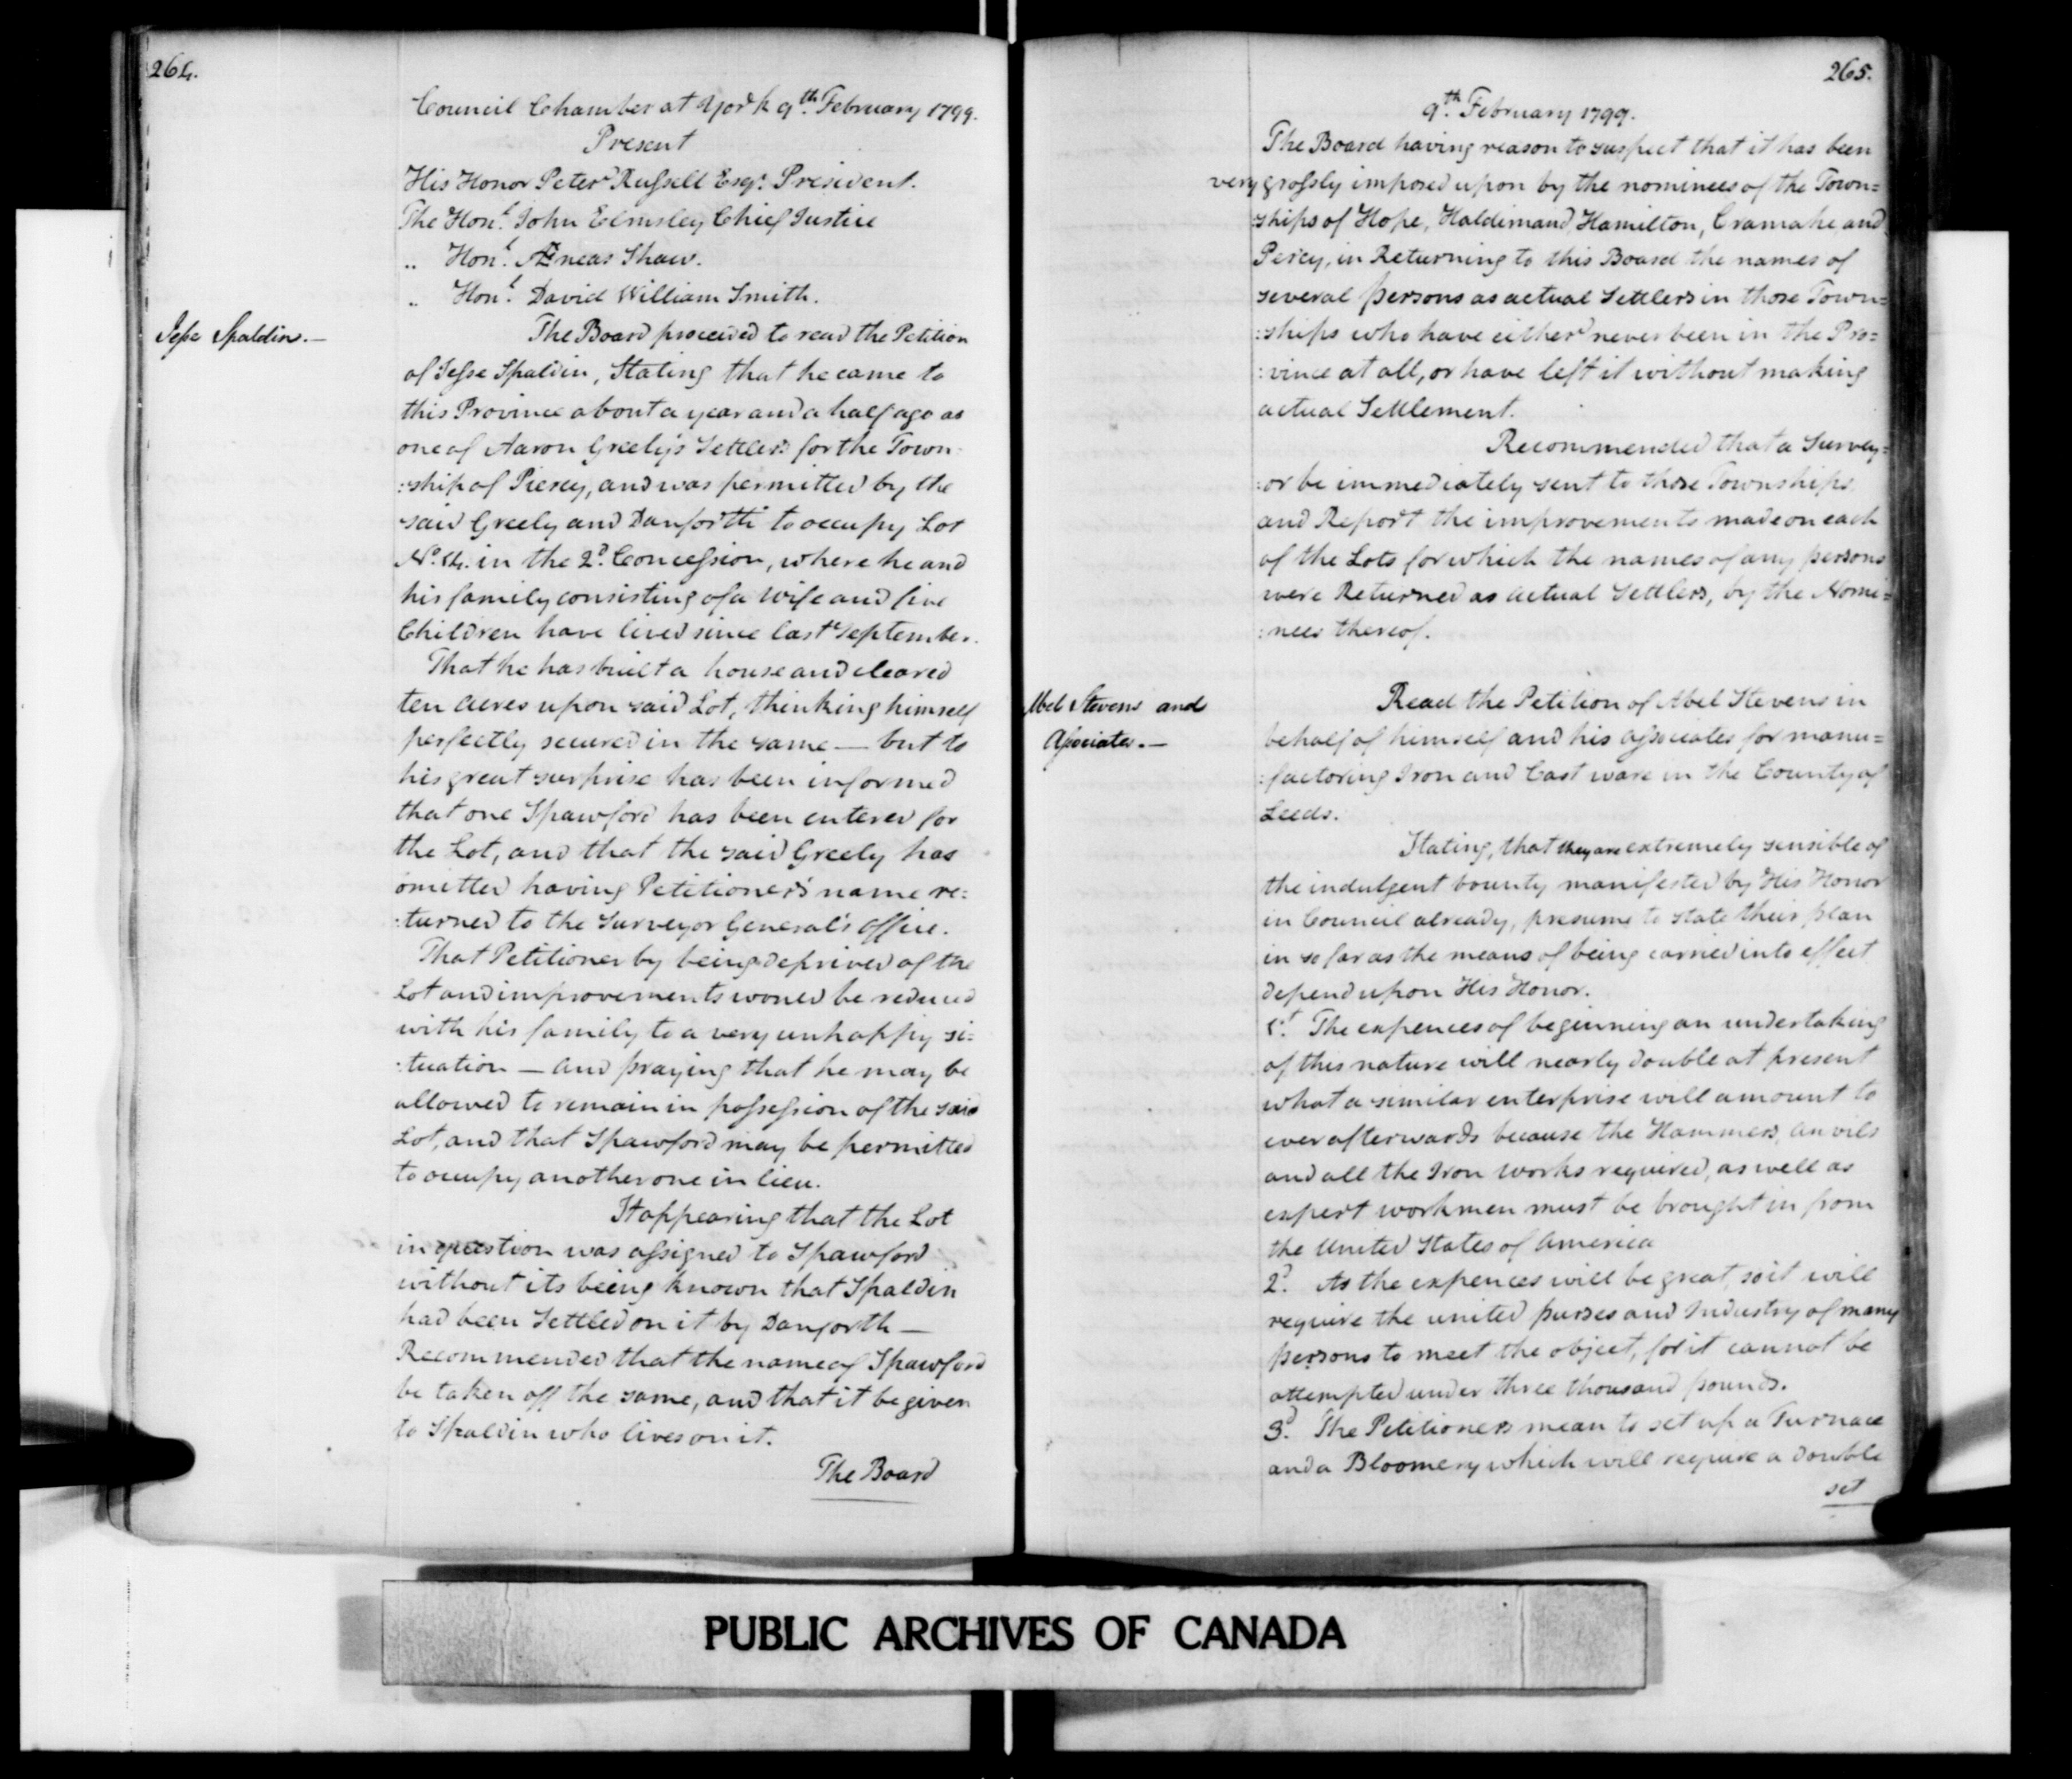 264.
Council Chamber at York 9th. February 1799.
Present
His Honor Peter Russell Esqr. President.
The Honl. John Elmsley Chief Justice
.. Honl. Æneas Shaw.
.. Honl. David William Smith.
Jesse Spaldin.—
The Board proceeded to read the Petition
of Jesse Spaldin, Stating that he came to
this Province about a year and a half ago as
one of Aaron Greely's Settlers for the Town-
:ship of Piercy, and was permitted by the
said Greely and Danforth to occupy Lot
No. 14. in the 2d. Concession, where he and
his family consisting of a Wife and five
Children have lived since last September.
That he has built a house and cleared
ten acres upon said Lot, thinking himself
perfectly secured in the same — but to
his great surprise has been informed
that one Spawford has been entered for
the Lot, and that the said Greely has
omitted having Petitioner's name re:
:turned to the Surveyor General's Office.
That Petitioner by being deprived of the
Lot and improvements would be reduced
with his family to a very unhappy si:
:tuation — and praying that he may be
allowed to remain in possession of the said
Lot, and that Spawford may be permitted
to occupy another one in lieu.
It appearing that the Lot
in question was assigned to Spawford
without its being known that Spaldin
had been Settled on it by Danforth —
Recommended that the name of Spawford
be taken off the same, and that it be given
to Spaldin who lives on it.
The Board
265.
9th. February 1799.
The Board having reason to suspect that it has been
very grossly imposed upon by the nominees of the Town=
:ships of Hope, Haldimand, Hamilton, Cramahe, and
Percy, in Returning to this Board the names of
several persons as actual Settlers in those Town=
:ships who have either never been in the Pro=
:vince at all, or have left it without making
actual Settlement.
Recommended that a Survey=
:or be immediately sent to those Townships
and Report the improvements made on each
of the Lots for which the names of any persons
were Returned as actual Settlers, by the Nomi=
:nees thereof.
Abel Stevens and
Associates.—
Read the Petition of Abel Stevens in
behalf of himself and his associates for manu=
:factoring Iron and Cast ware in the County of
Leeds.
Stating, that they are extremely sensible of
the indulgent bounty manifested by His Honor
in Council already, presume to state their plan
in so far as the means of being carried into effect
depend upon His Honor.
1st. The expences of beginning an undertaking
of this nature will nearly double at present
what a similar enterprise will amount to
ever afterwards because the Hammers, anvils
and all the Iron works required, as well as
expert workmen must be brought in from
the United States of America
2d. As the expences will be great, so it will
require the united purses and Industry of many
persons to meet the object, for it cannot be
attempted under three thousand pounds.
3d. The Petitioners mean to set up a Furnace
and a Bloomery which will require a double
set
PUBLIC ARCHIVES OF CANADA